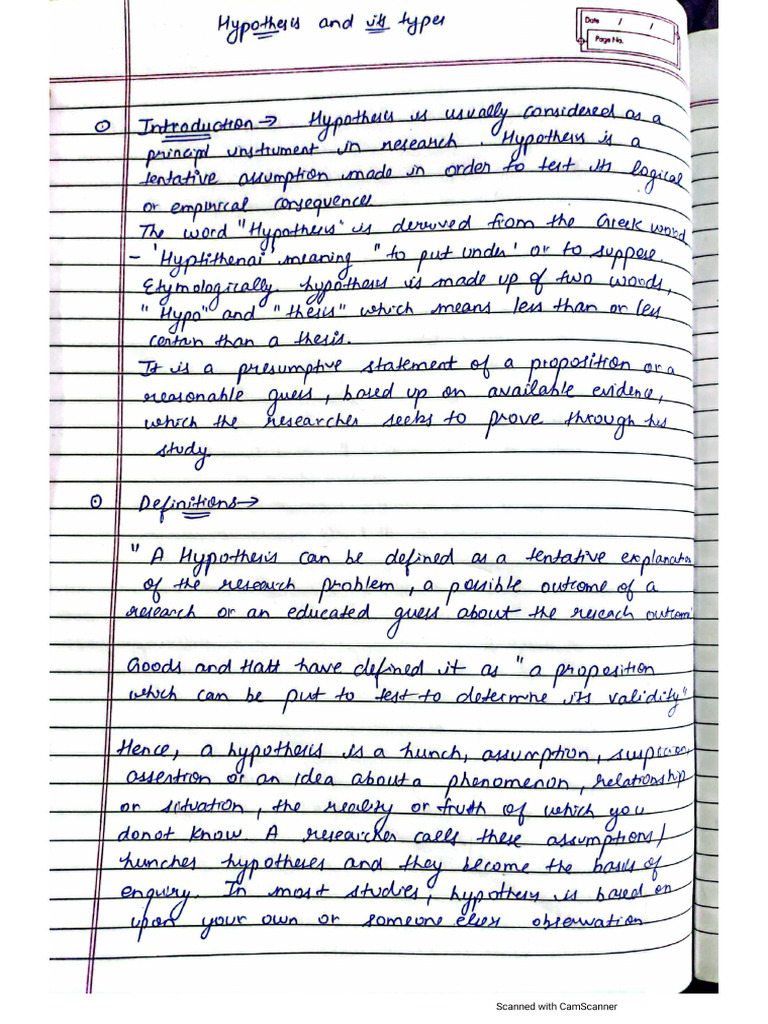 Hypothesis and its types
Date / /
Page No.
Introduction → Hypothesis is usually considered as a
principl instrument in research. Hypothesis is a
tentative assumption made in order to test its logical
or empirical consequences
The word "Hypothesis' is derived from the Greek word
- 'Hyptithenai' meaning "to put under' or to suppose.
Etymologically hypothesis is made up of two words,
"Hypo" and "thesis" which means less than or less
certain than a thesis.
It is a presumptive statement of a proposition or a
reasonable guess, based up on available evidence,
which the researcher seeks to prove through his
study.
Definitions →
"A Hypothesis can be defined as a tentative explanation
of the research problem, a possible outcome of a
research or an educated guess about the reseach outcom
Goods and Hatt have defined it as "a proposition
which can be put to test to determine its validity"
Hence, a hypothesis is a hunch, assumption, suspicion,
assertion or an idea about a phenomenon, relationship
or situation, the reality or truth of which you
donot know. A researcher calls these assumptions/
hunches hypotheses and they become the basis of
enquiry. In most studies, hypothesis is based on
upon your own or someone elses observation
Scanned with CamScanner